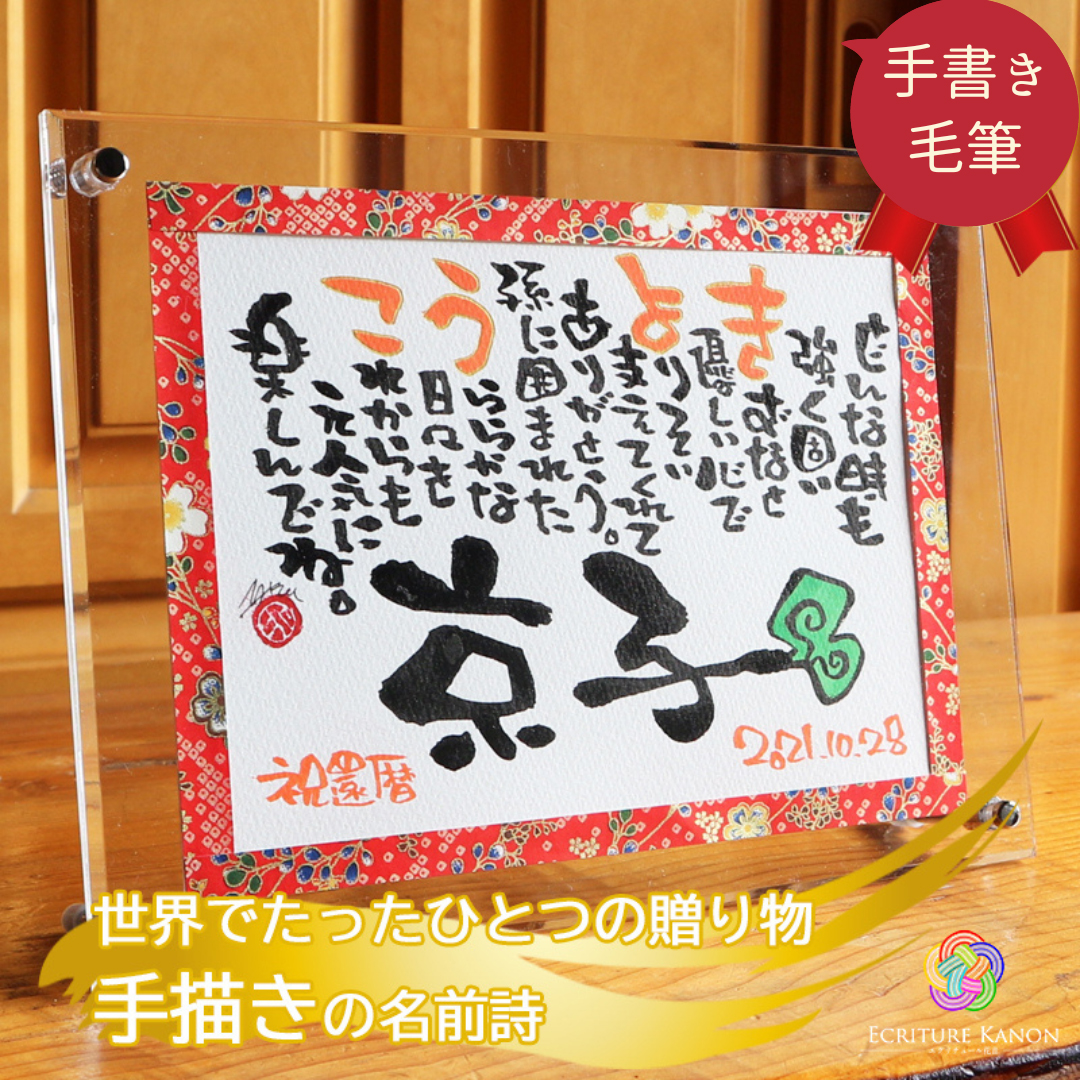 手書き
毛筆
どんな時も
強く固い
きずなと
優しい心で
よりそい
支えてくれて
ありがとう。
孫に囲まれた
うららかな
日々を
これからも
元気に
楽しんでね。
京子
祝還暦
2021.10.28
世界でたったひとつの贈り物
手描きの名前詩
ECRITURE KANON